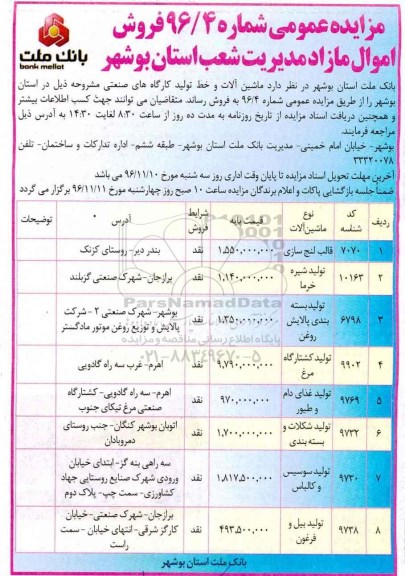 مزایده عمومی شماره ۹۶/۴ فروش
اموال مازاد مدیریت شعب استان بوشهر
بانک ملت
bank mellat
بانک ملت استان بوشهر در نظر دارد ماشین آلات و خط تولید کارگاه های صنعتی مشروحه ذیل در استان
بوشهر را از طریق مزایده عمومی شماره ۹۶/۴ به فروش رساند. متقاضیان می توانند جهت کسب اطلاعات بیشتر
و همچنین دریافت اسناد مزایده از تاریخ روزنامه به مدت ده روز از ساعت ۸:۳۰ لغایت ۱۴:۳۰ به آدرس ذیل
مراجعه فرمایند.
بوشهر- خیابان امام خمینی- مدیریت بانک ملت استان بوشهر- طبقه ششم- اداره تدارکات و ساختمان- تلفن
۳۳۳۲۰۰۷۸
آخرین مهلت تحویل اسناد مزایده تا پایان وقت اداری روز سه شنبه مورخ ۹۶/۱۱/۱۰ می باشد
ضمناً جلسه بازگشایی پاکات و اعلام برندگان مزایده ساعت ۱۰ صبح روز چهارشنبه مورخ ۹۶/۱۱/۱۱ برگزار می گردد
ردیف کد شناسه نوع ماشین آلات قیمت پایه شرایط فروش آدرس توضیحات
۱ ۷۰۷۰ قالب لنج سازی ۱،۵۵۰،۰۰۰،۰۰۰ نقد بندر دیر- روستای کزنک
۲ ۱۰۱۶۳ تولید شیره خرما ۱،۱۴۰،۰۰۰،۰۰۰ نقد برازجان- شهرک صنعتی گزبلند
۳ ۶۷۹۸ تولید بسته بندی پالایش روغن ۱،۳۵۰،۰۰۰،۰۰۰ نقد بوشهر- شهرک صنعتی ۲ - شرکت پالایش و توزیع روغن موتور مادگستر
۴ ۹۹۰۲ تولید کشتارگاه مرغ ۹،۷۹۰،۰۰۰،۰۰۰ نقد اهرم- غرب سه راه گادویی
۵ ۹۷۶۹ تولید غذای دام و طیور ۹۷۰،۰۰۰،۰۰۰ نقد اهرم- سه راه گادویی- کشتارگاه صنعتی مرغ تیکای جنوب
۶ ۹۷۳۲ تولید شکلات و بسته بندی ۱،۷۰۰،۰۰۰،۰۰۰ نقد اتوبان بوشهر کنگان- جنب روستای دمروبادان
۷ ۹۷۳۰ تولید سوسیس و کالباس ۱،۸۱۷،۵۰۰،۰۰۰ نقد سه راهی بنه گز- ابتدای خیابان ورودی شهرک صنایع روستایی جهاد کشاورزی- سمت چپ- پلاک دوم
۸ ۹۷۳۸ تولید بیل و فرغون ۴۹۳،۵۰۰،۰۰۰ نقد برازجان- شهرک صنعتی- خیابان کارگر شرقی- انتهای خیابان - سمت راست
بانک ملت استان بوشهر
ParsNamadData
پایگاه اطلاع رسانی مناقصه و مزایده
۰۲۱-۸۸۳۴۹۶۷۰-۵